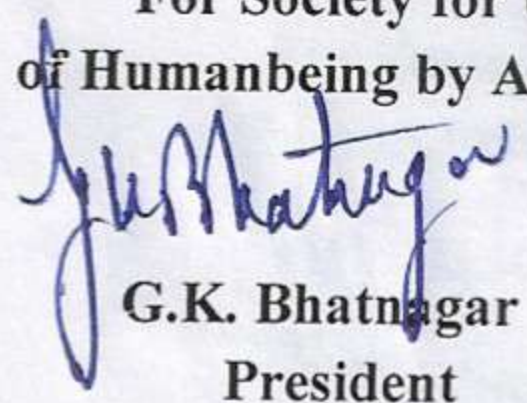 For Society for
of Humanbeing by A
GKBhatnagar
G.K. Bhatnagar
President